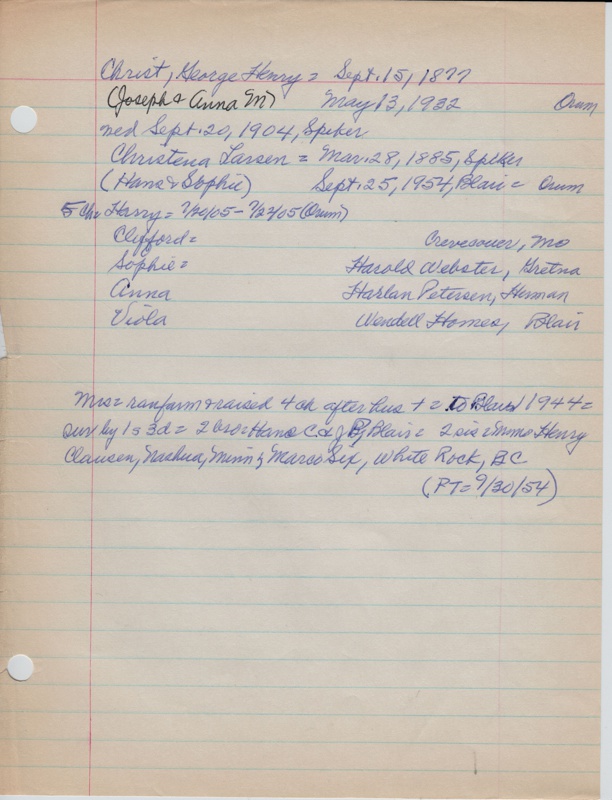 Christ, George Henry = Sept. 15, 1877
(Joseph & Anna M) May 13, 1932 Orum
med Sept. 20, 1904, Spiker
Christena Larsen = Mar. 28, 1885, Spiker
(Hans & Sophie) Sept. 25, 1954, Blair = Orum
5 Ch = Harry = 7/20/05 - 7/23/05 (Orum)
Clifford = Crevecouer, Mo
Sophie = Harold Webster, Gretna
Anna Harlan Petersen, Herman
Viola Wendell Homes, Blair
Mrs = ran farm & raised 4 ch after hus + = to Blair 1944 =
surv by 1 s 3 d = 2 bro = Hans C & Blair = 2 sis = Mmes Henry
Clausen, Nashua, Minn & Marco Six, White Rock, BC
(PT = 9/30/54)